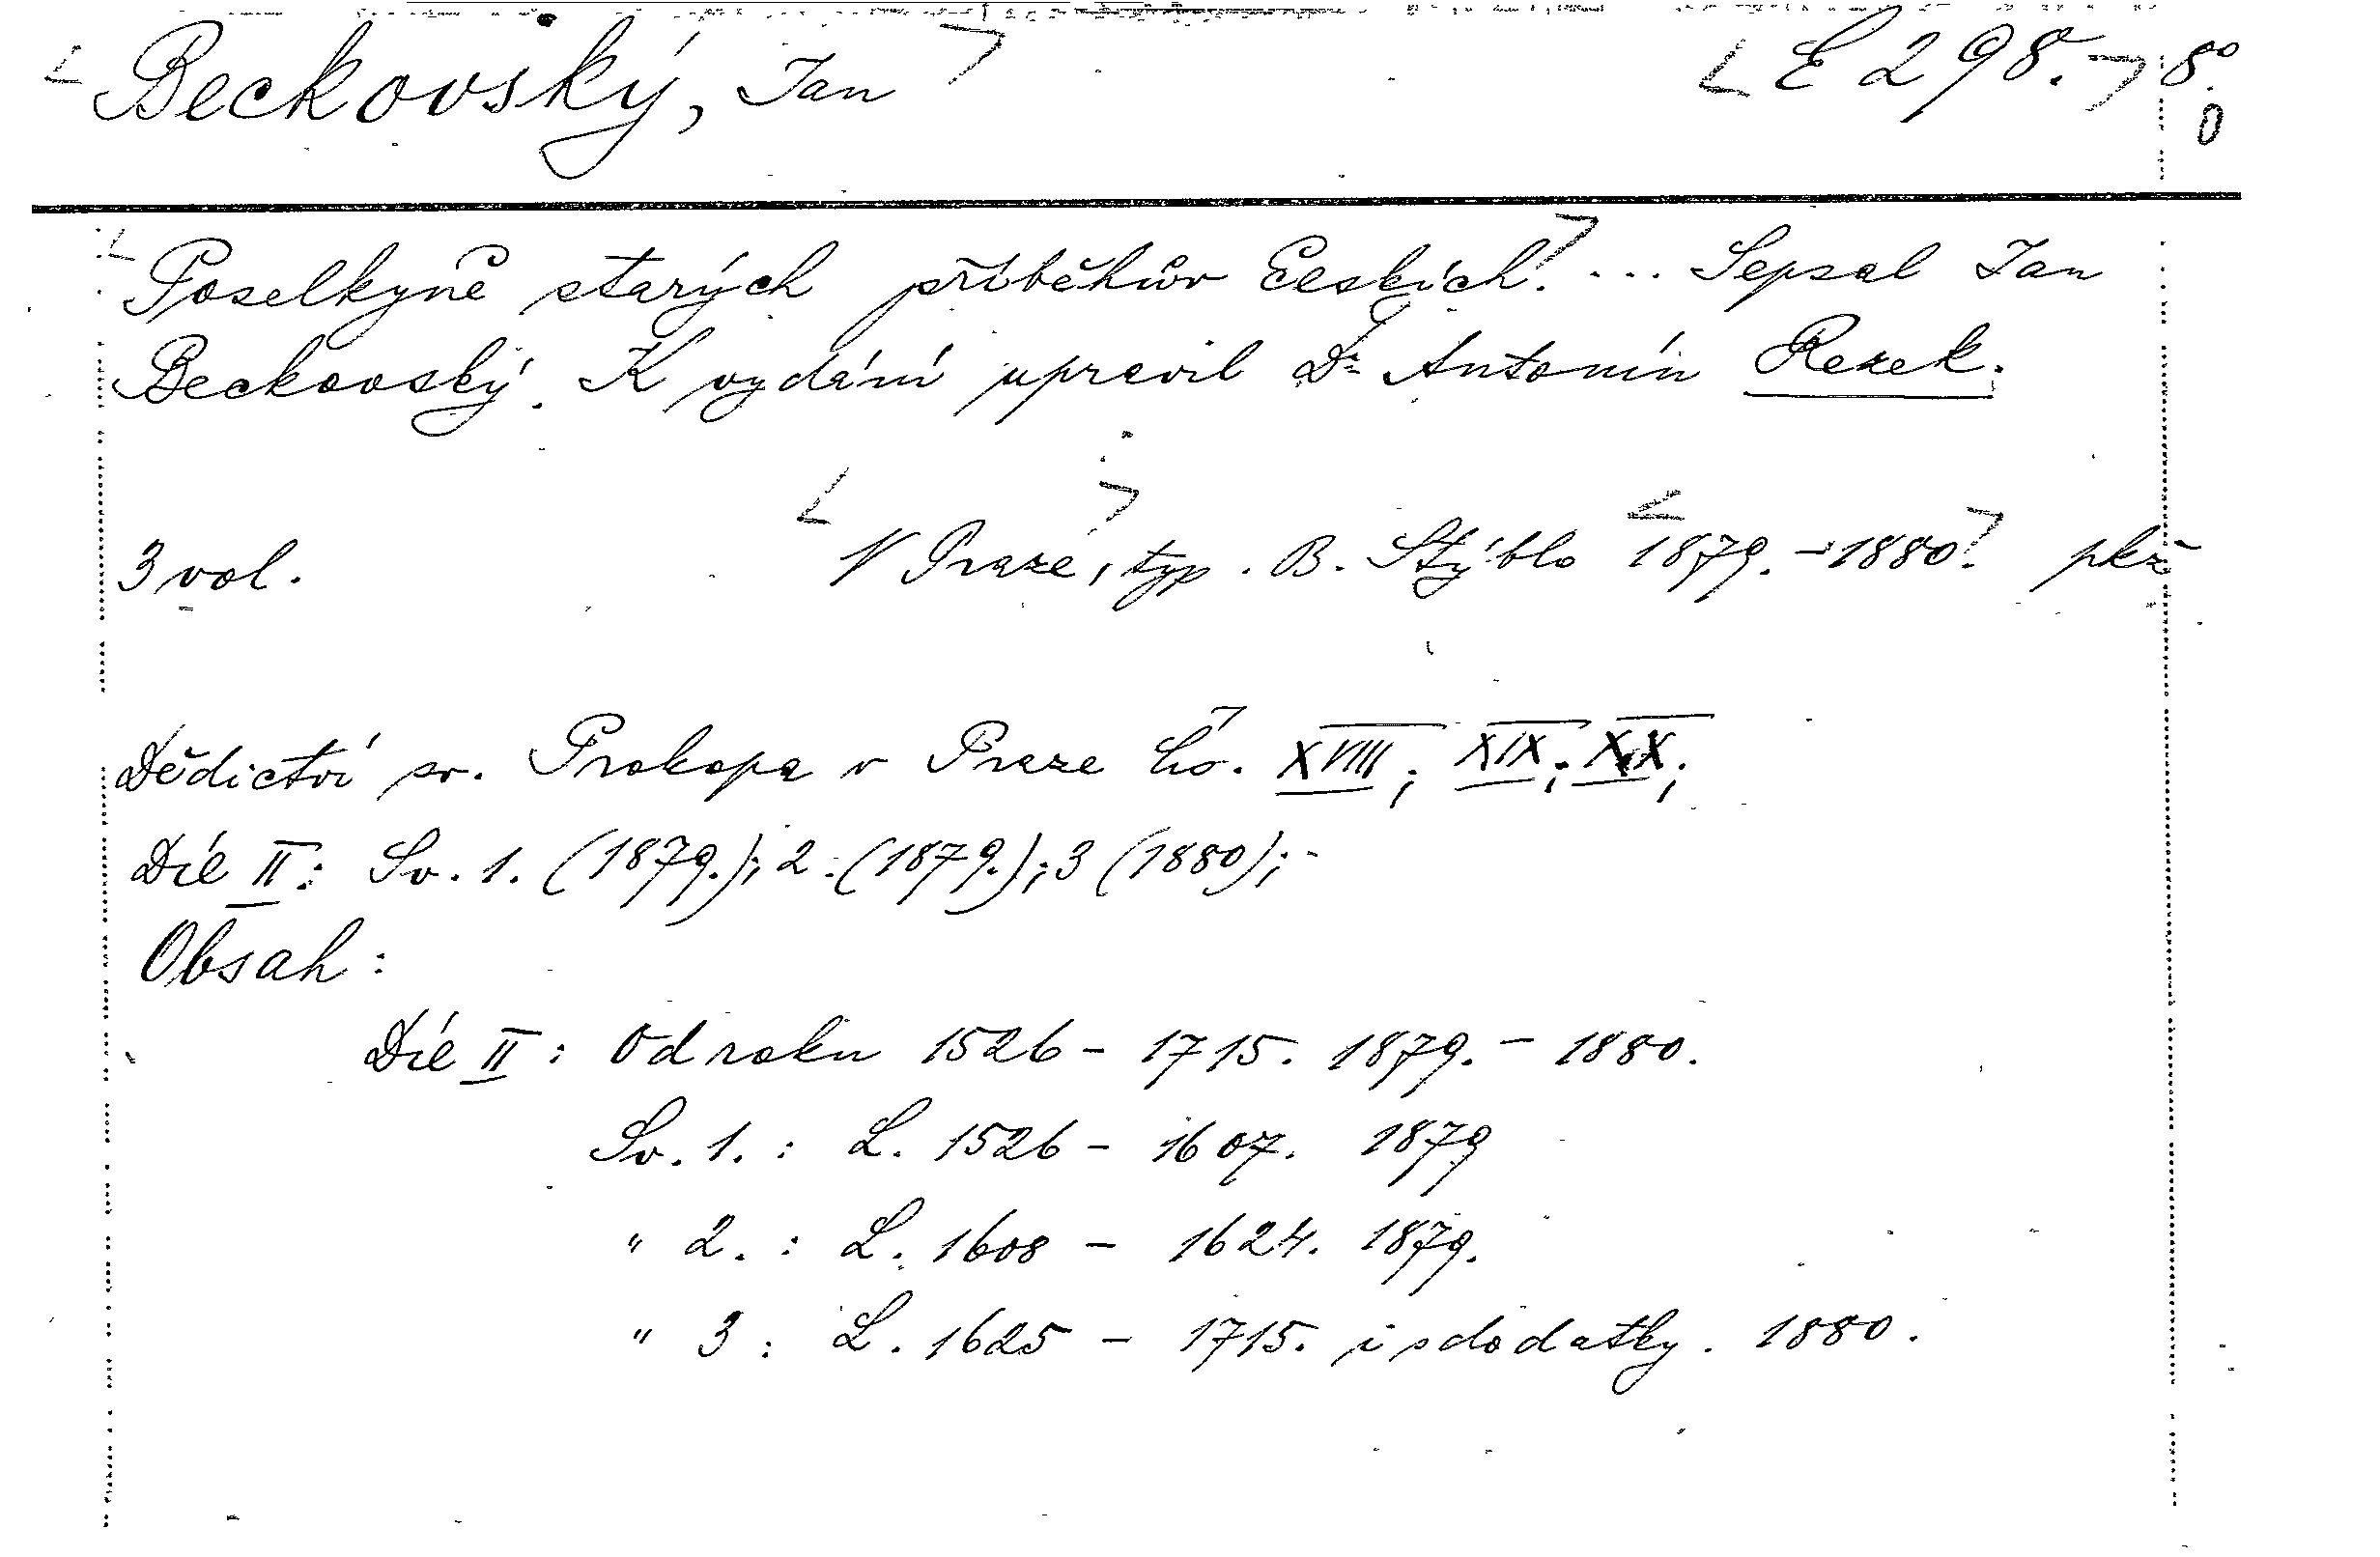 Beckovský, Jan E 298. 8°.
0
Poselkyně starých příběhův českých. ... Sepsal Jan
Beckovský. K vydání upravil Dr Antonín Rezek.
3 vol. V Praze, typ. B. Stýblo 1879. - 1880.
Dědictví sv. Prokopa v Praze čís. XVIII; XIX; XX;
Díl II: Sv. 1. (1879.); 2. (1879.); 3 (1880); -
Obsah:
Díl II: Od roku 1526 - 1715. 1879. - 1880.
Sv. 1. : L. 1526 - 1607. 1879
" 2. : L. 1608 - 1624. 1879.
" 3 : L. 1625 - 1715. i s dodatky. 1880.